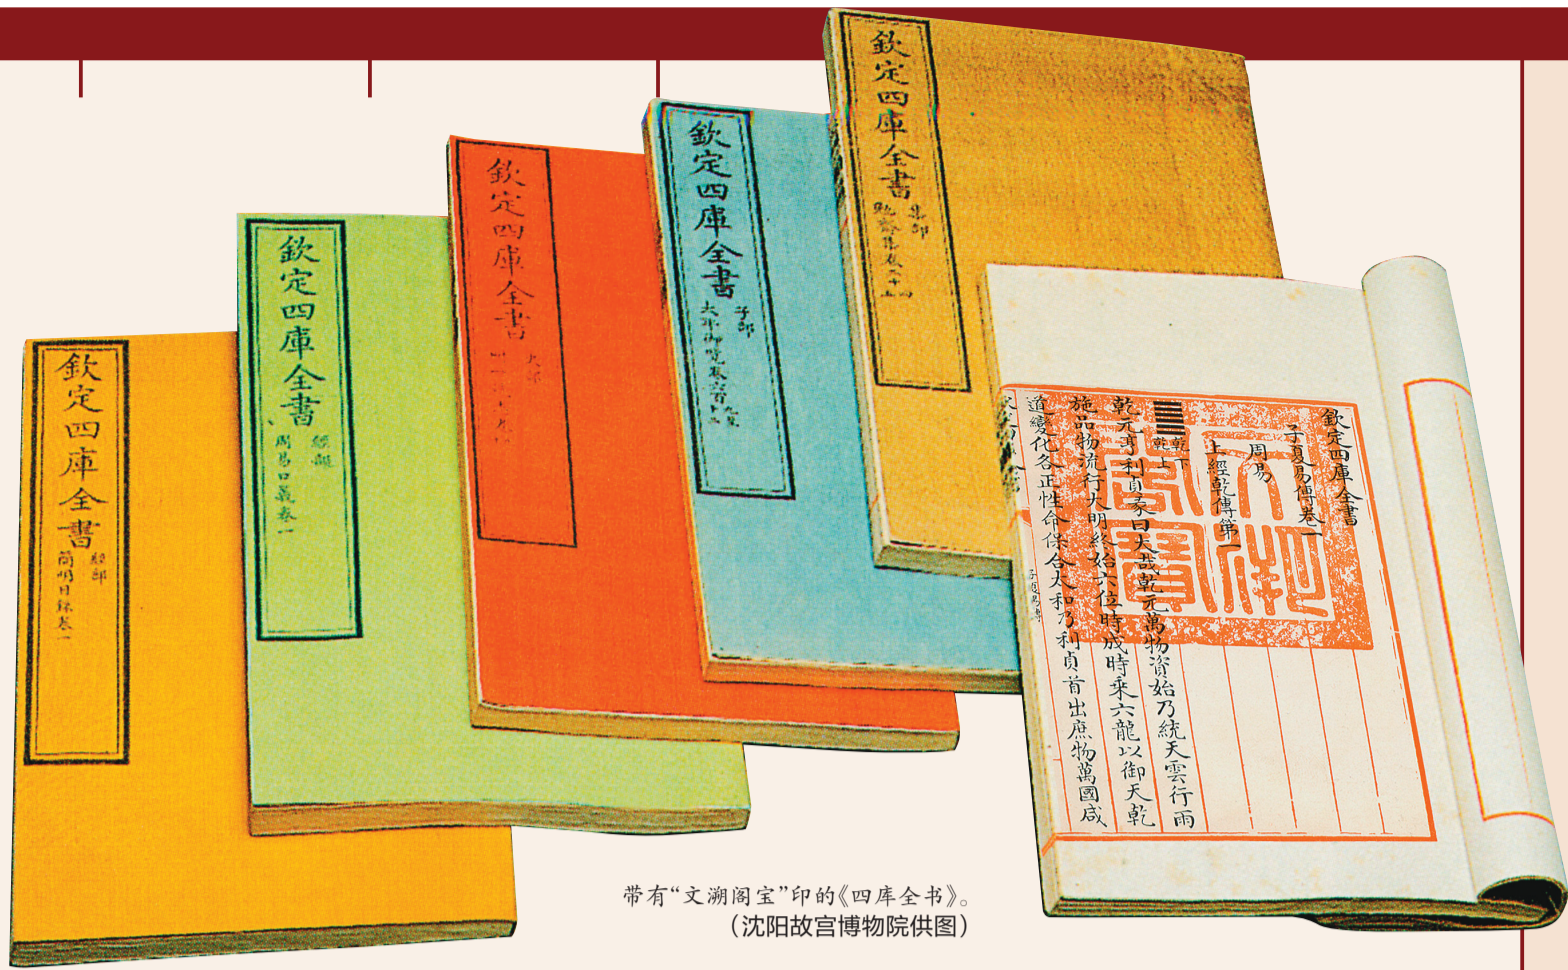 欽定四庫全書
經部
簡明目錄卷一
欽定四庫全書
經部
周易口義卷一
欽定四庫全書
欽定四庫全書
子部
太平御覽卷六百
欽定四庫全書
集部
勉齋集卷二十四
欽定四庫全書
子夏易傳卷一
周易
上經乾傳第一
乾下
乾上
乾元亨利貞彖曰大哉乾元萬物資始乃統天雲行雨
施品物流行大明終始六位時成時乘六龍以御天乾
道變化各正性命保合太和乃利貞首出庶物萬國咸
文溯閣寶
带有“文溯阁宝”印的《四库全书》。
（沈阳故宫博物院供图）